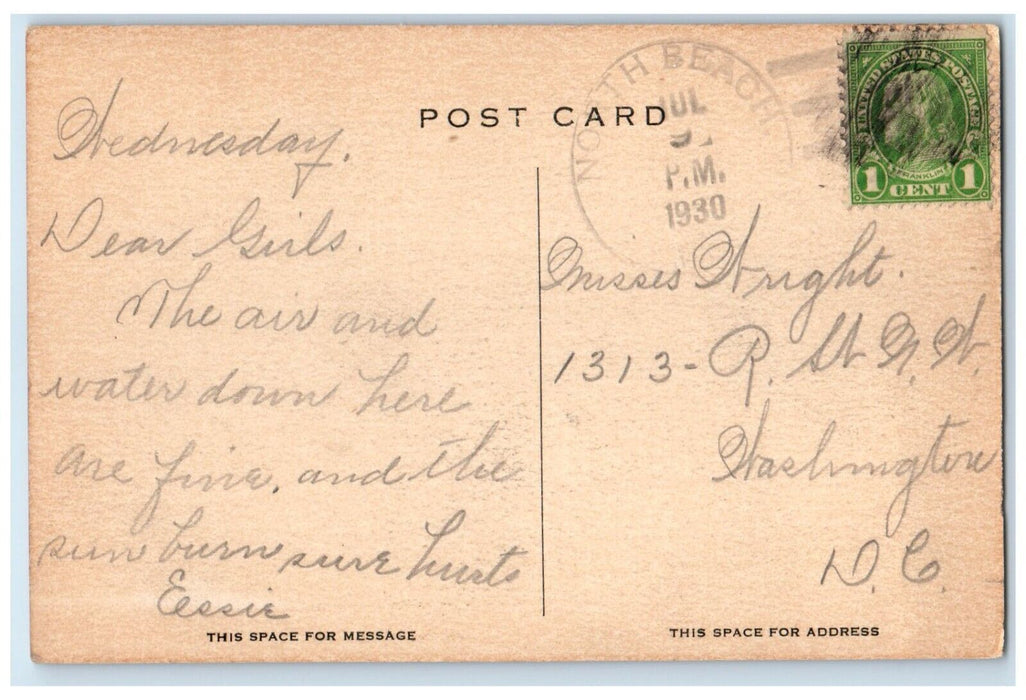 POST CARD
NORTH BEACH
JUL
9
P.M.
1930
UNITED STATES POSTAGE
FRANKLIN
1 CENT 1
Wednesday.
Dear Girls.
The air and
water down here
are fine, and the
sun burn sure hurts
Essie
THIS SPACE FOR MESSAGE
Misses Wright.
1313 - R. St N. W.
Washington
D. C.
THIS SPACE FOR ADDRESS